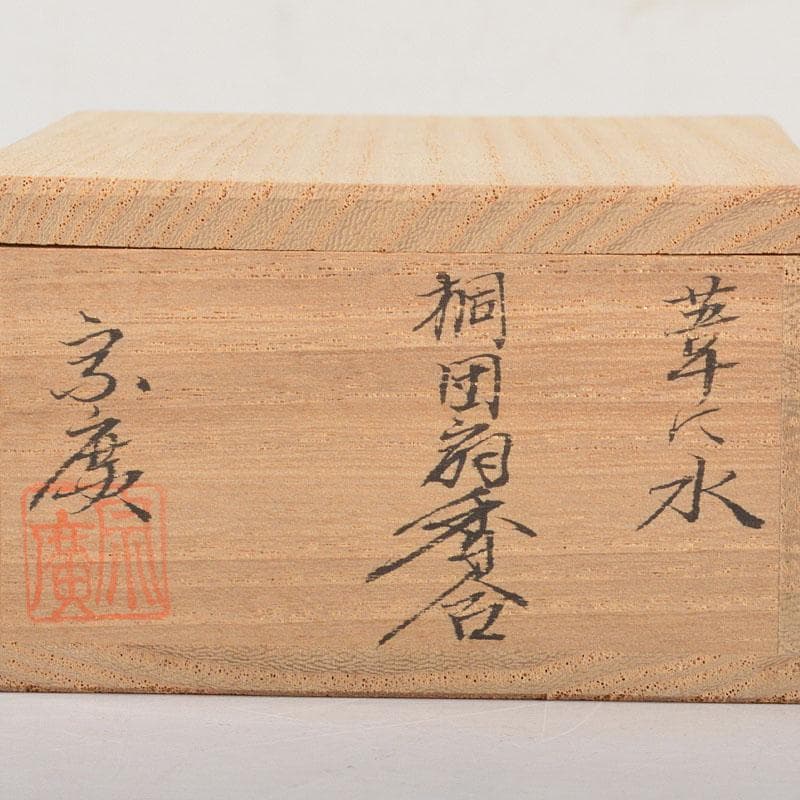 葦に水
桐団扇香合
宗廣
宗廣